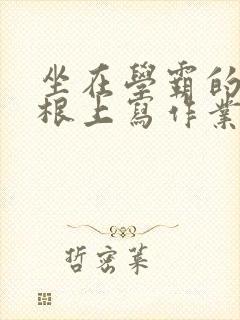 坐在學霸的
根上寫作業
哲密菓